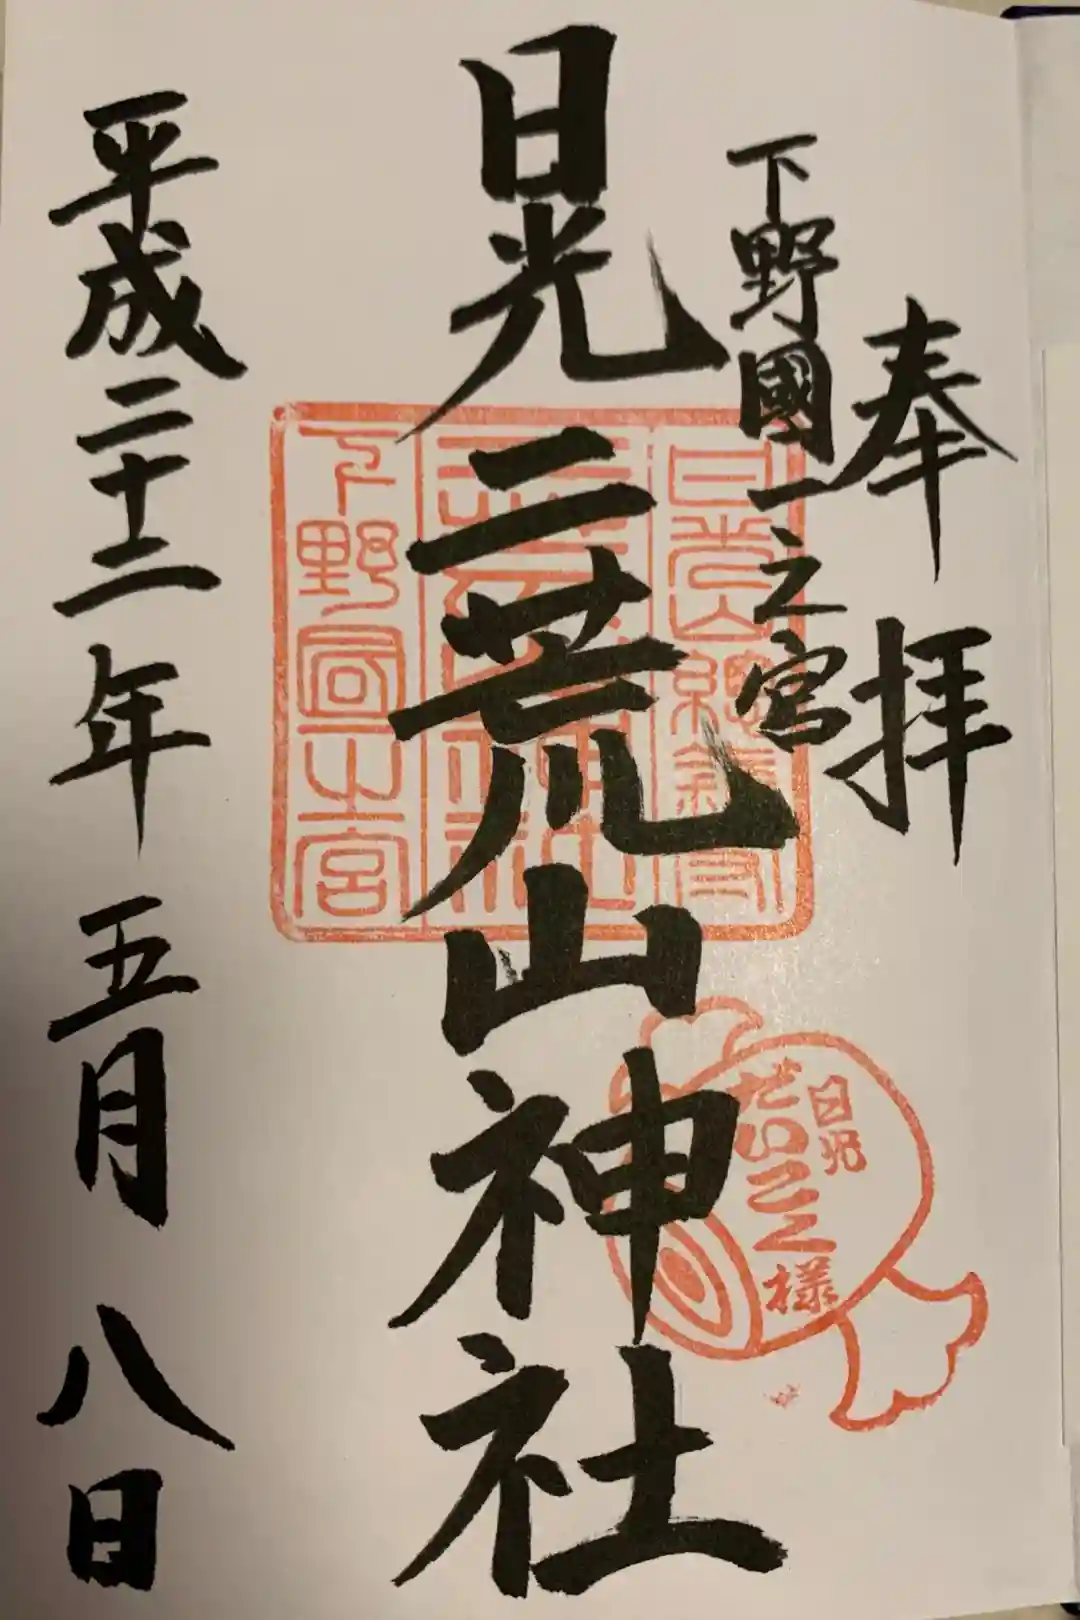 奉拝
下野國一之宮
日光二荒山神社
平成二十二年五月八日
日光山總鎮守
下野國一之宮
日光
だいこく様